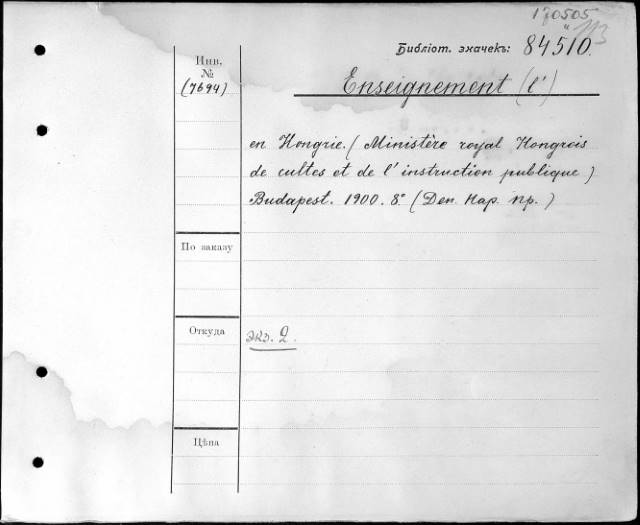 170505
Библіот. значекъ: 84510.
Инв.
№
(7694)
Enseignement (l')
en Hongrie. (Ministère royal Hongrois
de cultes et de l'instruction publique)
Budapest. 1900. 8.° (Деп. Нар. Пр.)
По заказу
Откуда
экз. 2.
Цѣна